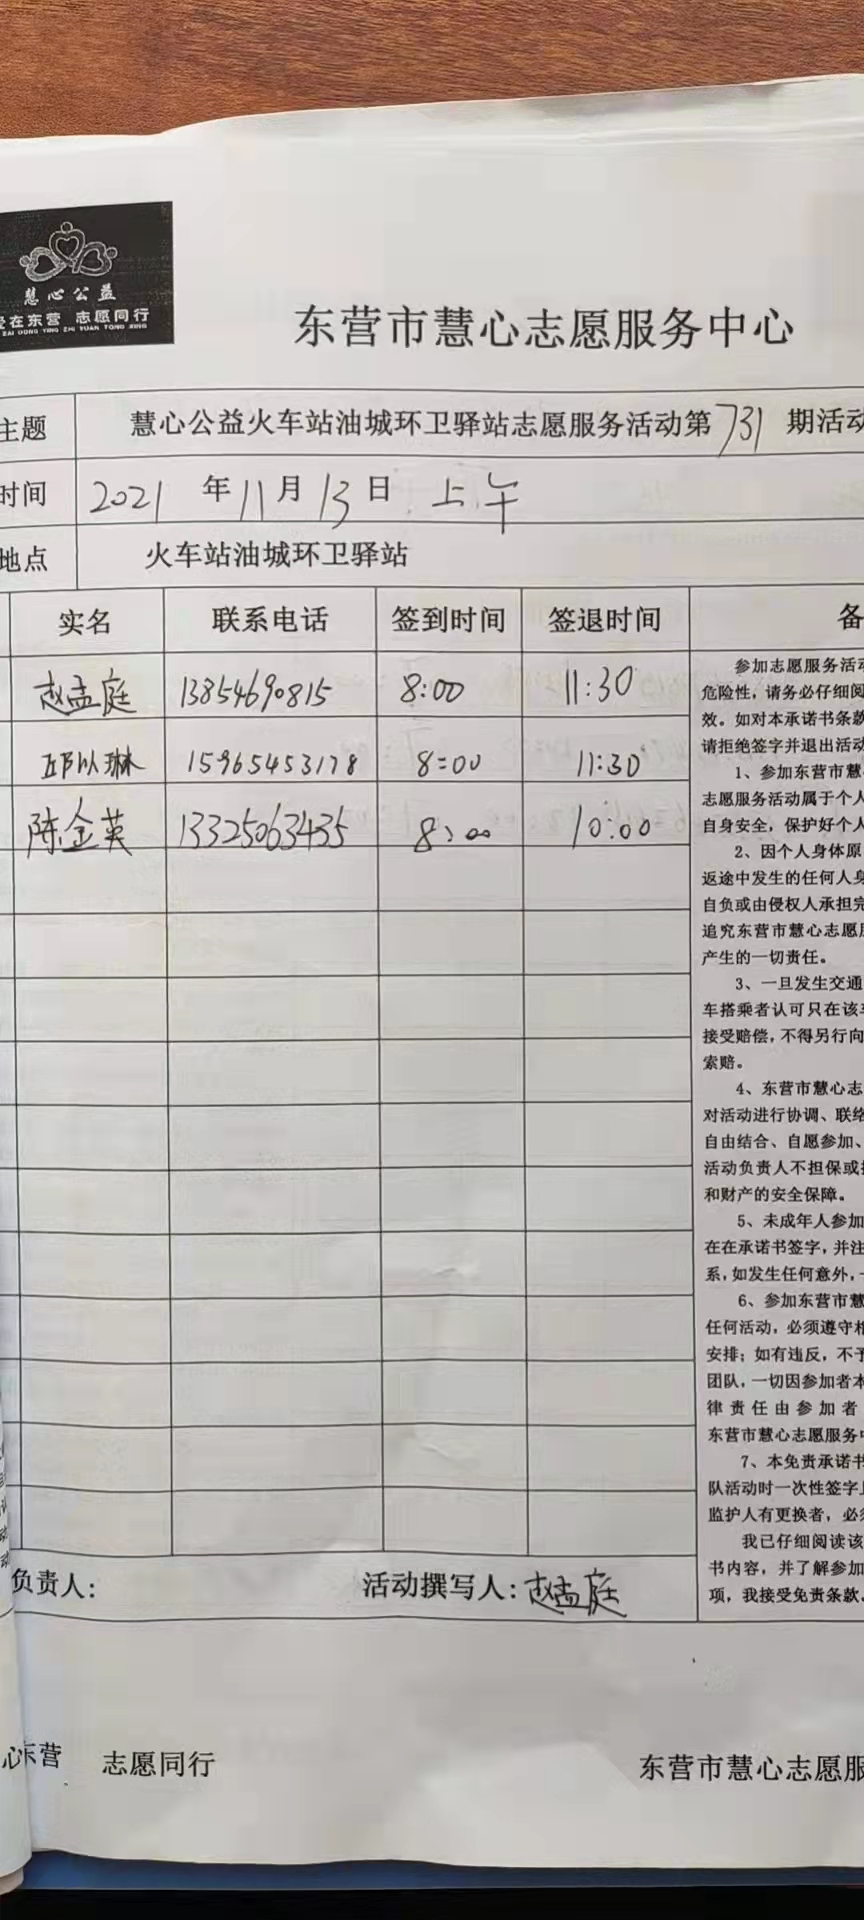 慧心公益
爱在东营 志愿同行
ZAI DONG YING ZHI YUAN TONG XING
东营市慧心志愿服务中心
主题 慧心公益火车站油城环卫驿站志愿服务活动第731期活动
时间 2021年11月13日 上午
地点 火车站油城环卫驿站
实名 联系电话 签到时间 签退时间 备
赵孟庭 13854690815 8:00 11:30
邱以琳 15965453178 8:00 11:30
陈金英 13325063435 8:00 10:00
参加志愿服务活动
危险性，请务必仔细阅
效。如对本承诺书条款
请拒绝签字并退出活动
1、参加东营市慧
志愿服务活动属于个人
自身安全，保护好个人
2、因个人身体原
返途中发生的任何人身
自负或由侵权人承担完
追究东营市慧心志愿
产生的一切责任。
3、一旦发生交通
车搭乘者认可只在该车
接受赔偿，不得另行向
索赔。
4、东营市慧心志
对活动进行协调、联络
自由结合、自愿参加、
活动负责人不担保或
和财产的安全保障。
5、未成年人参加
在在承诺书签字，并注
系，如发生任何意外，
6、参加东营市慧
任何活动，必须遵守相
安排；如有违反，不予
团队，一切因参加者本
律责任由参加者
东营市慧心志愿服务中
7、本免责承诺书
队活动时一次性签字
监护人有更换者，必须
我已仔细阅读该
书内容，并了解参加
项，我接受免责条款。
负责人： 活动撰写人：赵孟庭
心东营 志愿同行 东营市慧心志愿服